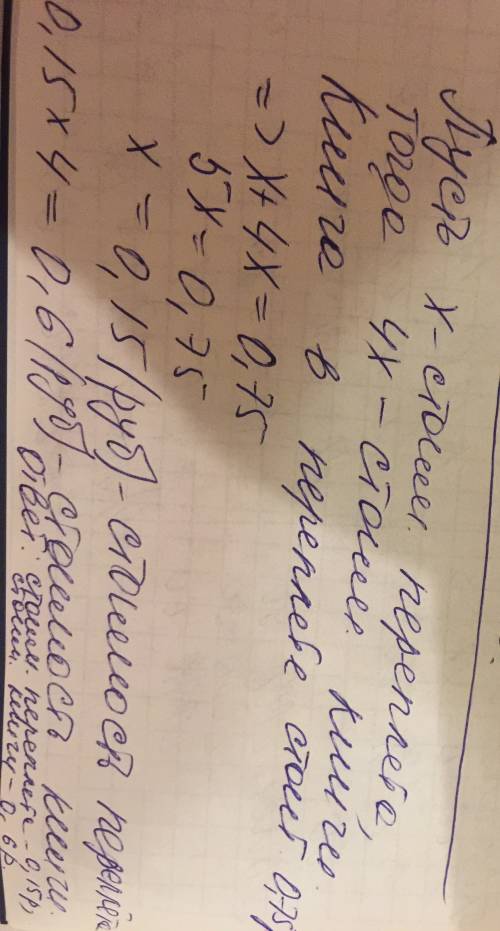 Пусть х - стоим. переплета,
тогда 4х - стоим. книги
Книга в переплете стоит 0,75
=> х+4х=0,75
5х=0,75
х=0,15(руб) - стоимость переплета
0,15х4=0,6(руб) - стоимость книги.
ответ: стоим. переплета - 0,15р,
стоим. книги - 0,6р.